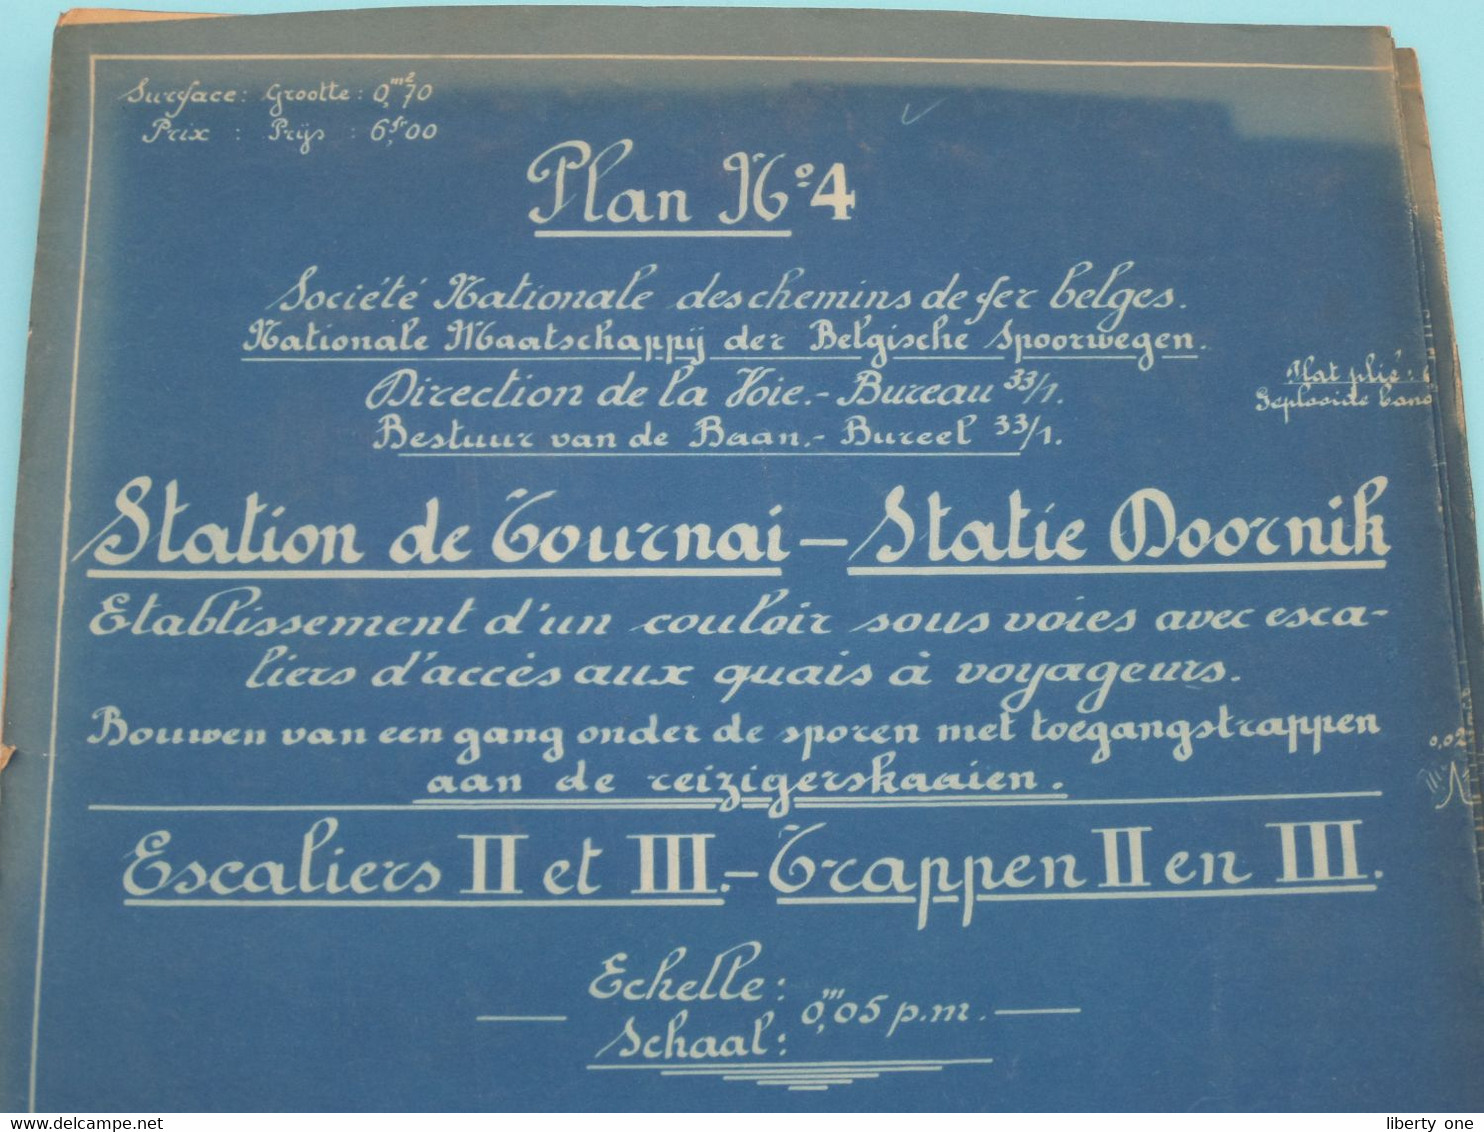 Surface: Grootte: 0,m270
Prix : Prijs : 6,fr00
Plan No 4
Société Nationale des chemins de fer belges.
Nationale Maatschappij der Belgische Spoorwegen.
Direction de la Voie.- Bureau 33/1.
Bestuur van de Baan.- Bureel 33/1.
Plat plié:
Station de Tournai – Statie Doornik
Etablissement d'un couloir sous voies avec esca-
liers d'accès aux quais à voyageurs.
Bouwen van een gang onder de sporen met toegangstrappen
aan de reizigerskaaien.
0,02
Escaliers II et III.- Trappen II en III.
Echelle:
Schaal:
0,m05 p.m.
liberty one